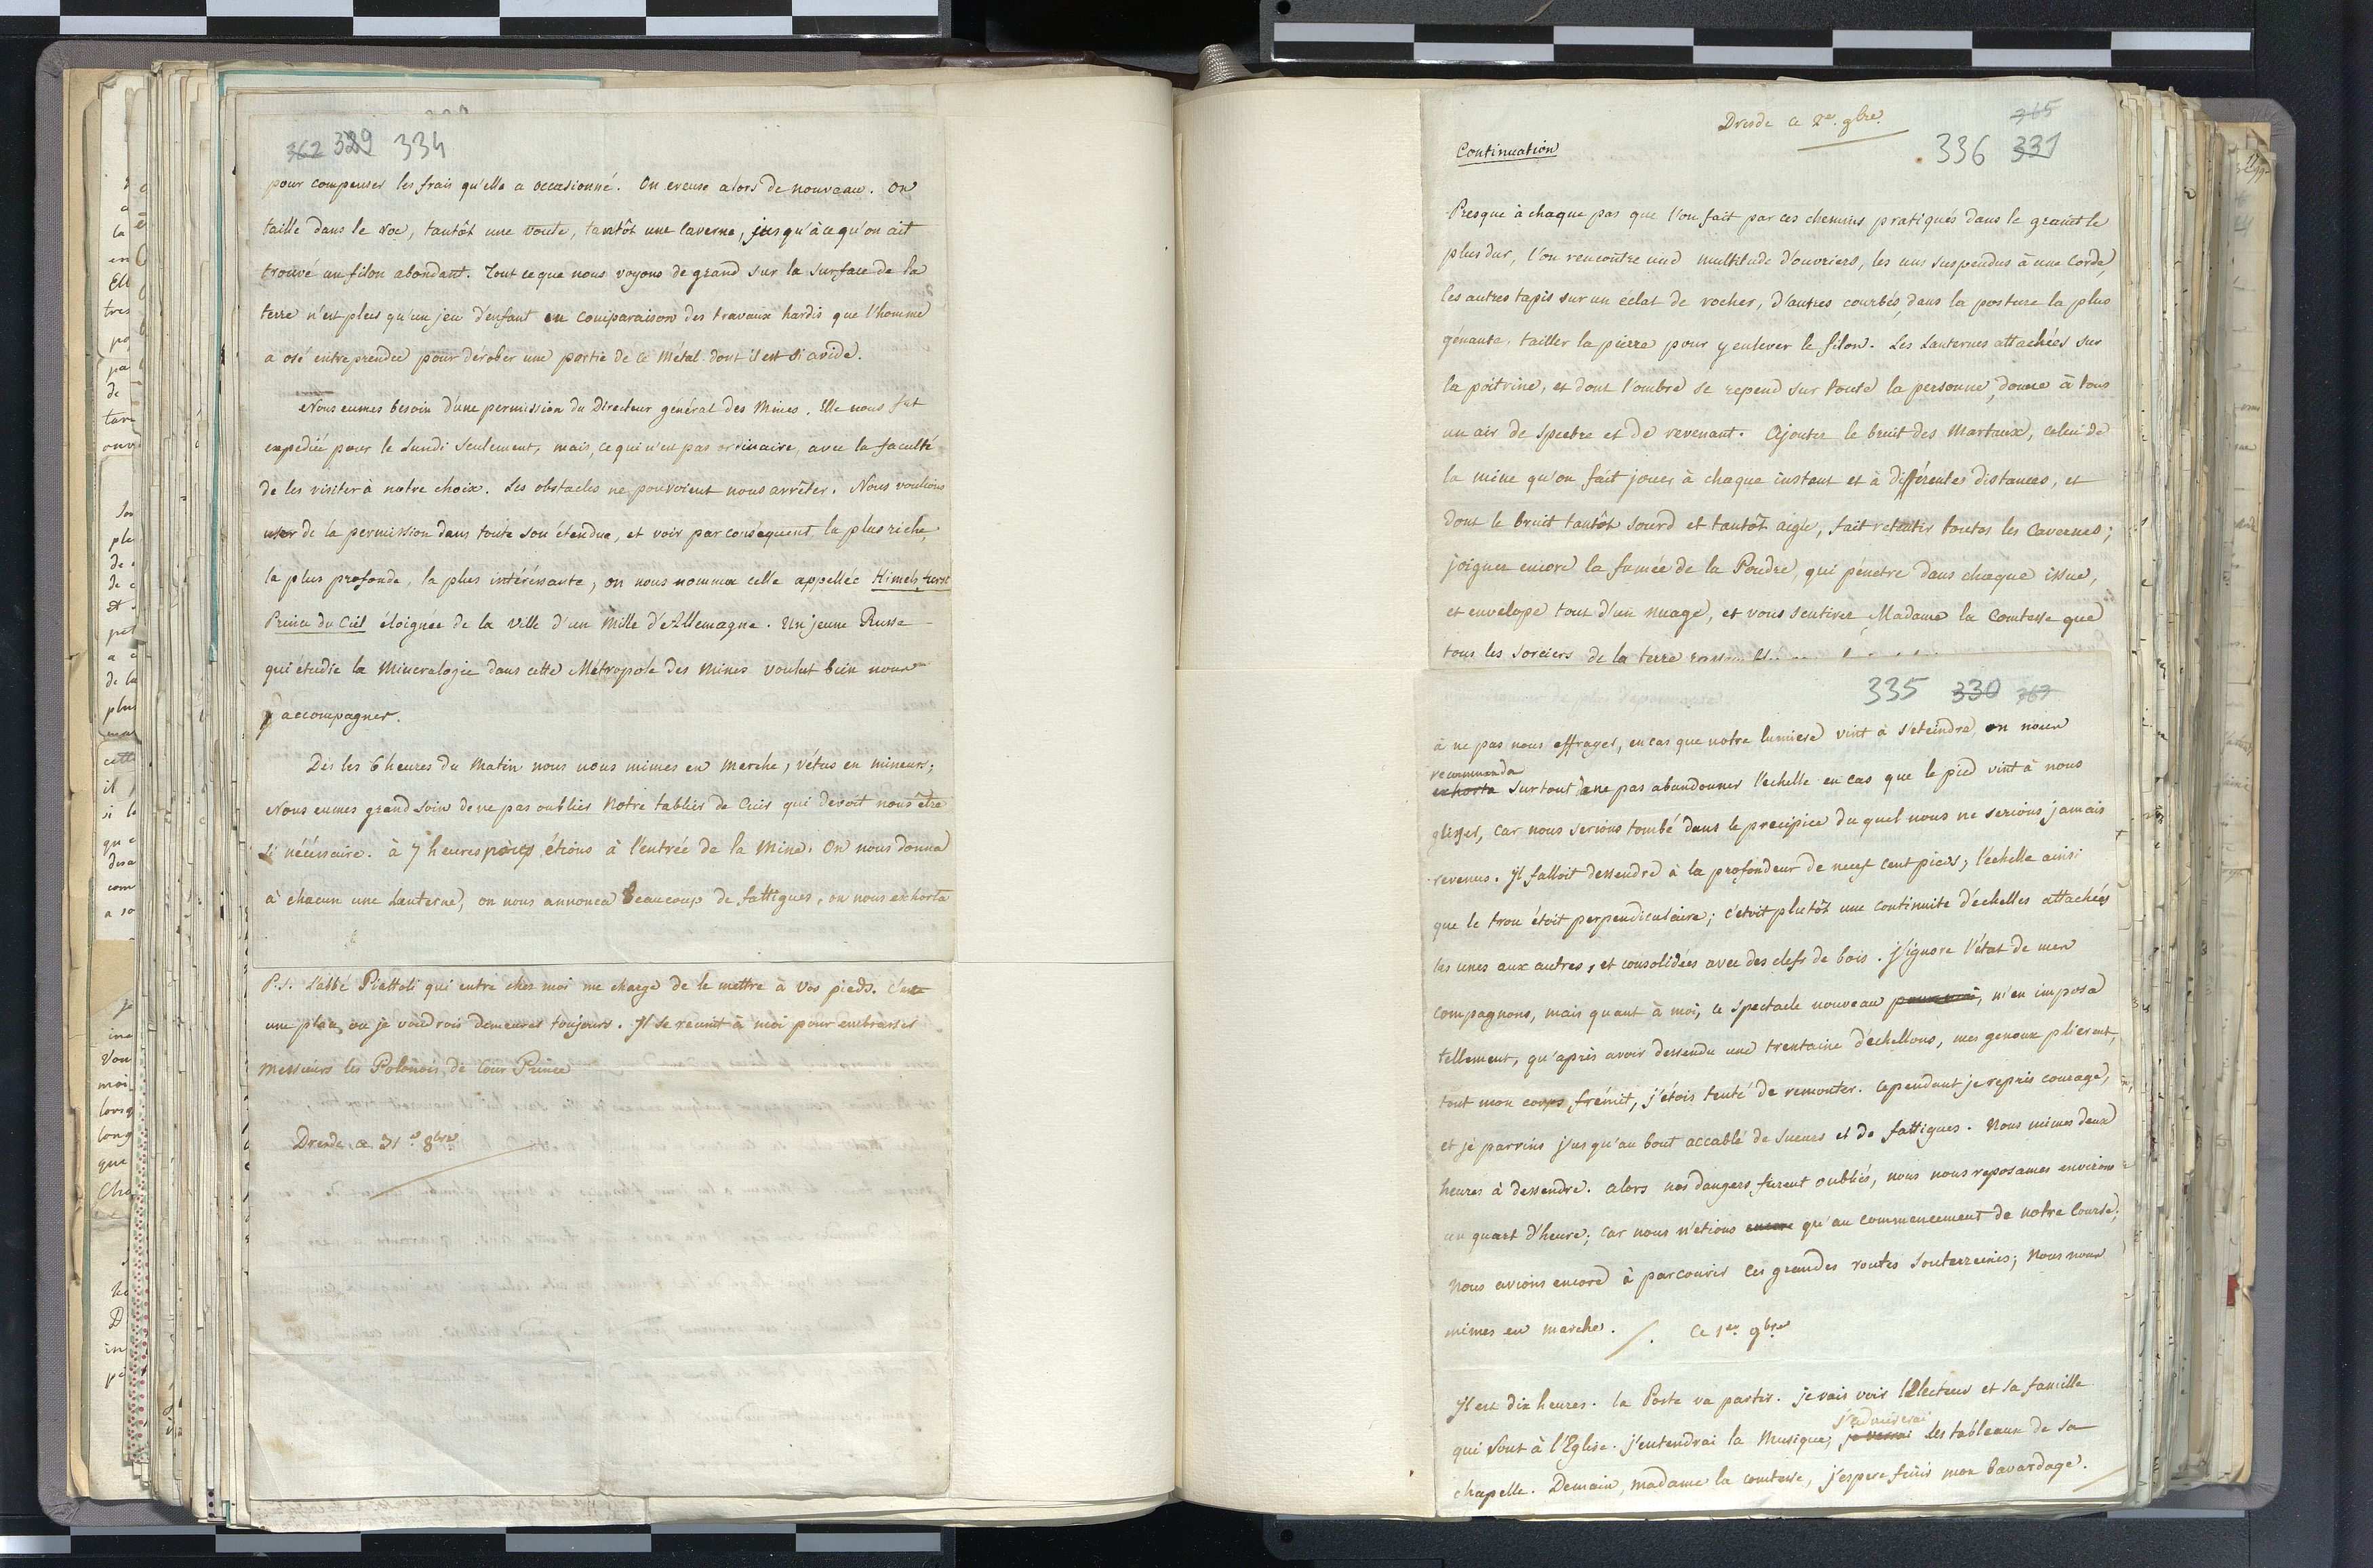 362 329 334
pour compenser les frais qu'elle a occasionné. On creuse alors de nouveau. on
taille dans le roc, tantôt une voute, tantôt une caverne, jusqu'à ce qu'on ait
trouvé un filon abondant. Tout ce que nous voyons de grand sur la surface de la
terre n'est plus qu'un jeu d'enfant en comparaison des travaux hardis que l'homme
a osé entreprendre pour dérober une portie de ce métal dont il est si avide.
Nous eumes besoin d'une permission du Directeur général des Mines. Elle nous fut
expediée pour le Lundi seulement, mais, ce qui n'est pas ordinaire, avec la faculté
de les visiter à notre choix. Les obstacles ne pouvoient nous arrêter. Nous voulions
user de la permission dans toute son étendue, et voir par conséquent la plus riche,
la plus profonde, la plus intéressante, on nous nomma celle appellée Himelsfurst
Prince du Ciel éloignée de la ville d'un mille d'Allemagne. Un jeune Russe
qui étudie la Mineralogie dans cette Métropole des mines voulut bien nous
y accompagner.
Dès les 6 heures du matin nous nous mimes en marche, vétus en mineurs;
Nous eumes grand soin de ne pas oublier notre tablier de Cuir qui devoit nous être
si nécessaire. à 7 heures nous étions à l'entrée de la Mine. On nous donna
à chacun une Lanterne, on nous annonca beaucoup de fattigues, on nous exhorta
P.S. L'abbé Piattoli qui entre chez moi me charge de le mettre à vos pieds. C'est
une place ou je voudrois demeurer toujours. Il se reunit à moi pour embrasser
Messieurs les Polonois, de Cour Prince
Dresde ce 31e 8bre
Dresde ce 2e. 9bre.
365
Continuation
336 331
Presque à chaque pas que l'on fait par ces chemins pratiqués dans le granit le
plus dur, l'on rencontre une multitude d'ouvriers, les uns suspendus à une Corde,
les autres tapis sur un éclat de rocher, d'autres courbés dans la posture la plus
gênante, tailler la pierre pour y enlever le filon. Les Lanternes attachées sur
la poitrine, et dont l'ombre se repend sur toute la personne, donne à tous
un air de spectre et de revenant. Ajoutez le bruit des Martaux, celui de
la mine qu'on fait jouer à chaque instant et à différentes distances, et
dont le bruit tantôt sourd et tantôt aigle, fait retentir toutes les Cavernes;
joignez encore la fumée de la Poudre, qui pénetre dans chaque issue,
et envelope tout d'un nuage, et vous sentirez, Madame la Comtesse que
tous les sorciers de la terre
335 330 363
à ne pas nous effrayer, en cas que notre lumiere vint à s'éteindre on nous
recommanda
exhorta surtout à ne pas abandonner l'echelle en cas que le pied vint à nous
glisser, car nous serions tombé dans le precipice du quel nous ne serions jamais
revenus. Il falloit dessendre à la profondeur de neuf cent pieds; l'échelle ainsi
que le trou étoit perpendiculaire; c'etoit plutôt une continuite d'échelles attachées
les unes aux autres, et consolidées avec des clefs de bois. J'ignore l'état de mes
compagnons, mais quant à moi, ce spectacle nouveau pour moi, m'en imposa
tellement, qu'après avoir dessendu une trentaine d'échellons, mes genoux plierent,
tout mon corps frémit, j'étois tenté de remonter. Cependant je repris courage,
et je parvins jusqu'au bout accablé de sueurs et de fattigues. Nous mimes deux
heures à dessendre. alors nos dangers furent oubliés, nous nous reposames environ
un quart d'heure; car nous n'etions encore qu'au commencement de notre Course;
Nous avions encore à parcourir ces grandes routes souterreines; Nous nous
mimes en marche. /. Ce 1er 9bre
Il est dix heures. la Poste va partir. je vais voir l'Electeur et sa famille
j'admirerai
qui sont à l'Eglise. j'entendrai la Musique, je verrai les tableaux de sa
chapelle. Demain, madame la comtesse, j'espere finir mon bavardage.